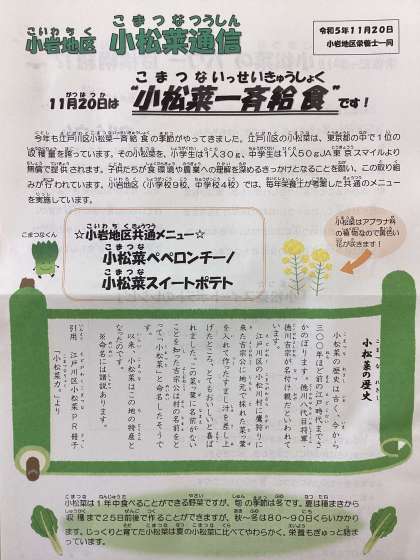 小岩地区 小松菜通信
令和5年11月20日
小岩地区栄養士一同
11月20日は“小松菜一斉給食”です！
今年も江戸川区小松菜一斉給食の季節がやってきました。江戸川区の小松菜は、東京都の中で1位の
収穫量を誇っています。その小松菜を、小学生は1人30g、中学生は1人50gJA東京スマイルより
無償で提供されます。子供たちが食環境や農業への理解を深めるきっかけとなることを願い、この取り組
みが行われています。小岩地区（小学校9校、中学校4校）では、毎年栄養士が考案した共通のメニュー
を実施しています。
こまつなくん
☆小岩地区共通メニュー☆
小松菜ペペロンチーノ
小松菜スイートポテト
小松菜はアブラナ科
の植物なので黄色い
花が咲きます！
小松菜の歴史
小松菜の歴史は古く、今から
三〇〇年ほど前の江戸時代までさ
かのぼります。徳川八代目将軍・
徳川吉宗の名付け親だといわれて
います。
江戸川区の小松川村に鷹狩りに
来た吉宗公に地元で採れた菜っ葉
を入れて作ったすまし汁を差し上
げたところ、とてもおいしいと喜ば
れました。この菜っ葉に名前がない
ことを知った吉宗公は村の名前をと
って「小松菜」と命名したそうです。
以来、小松菜はこの地の特産と
なったのです。
※命名には諸説あります。
引用 江戸川区小松菜PR冊子
「小松菜力」より
小松菜は1年中食べることができる野菜ですが、旬の季節は冬です。夏は種まきから
収穫まで25日前後で作ることができますが、秋～冬は80～90日くらいかかり
ます。じっくりと育てた小松菜は夏の小松菜に比べてやわらかく、栄養もぎゅっと詰まっ
ています。